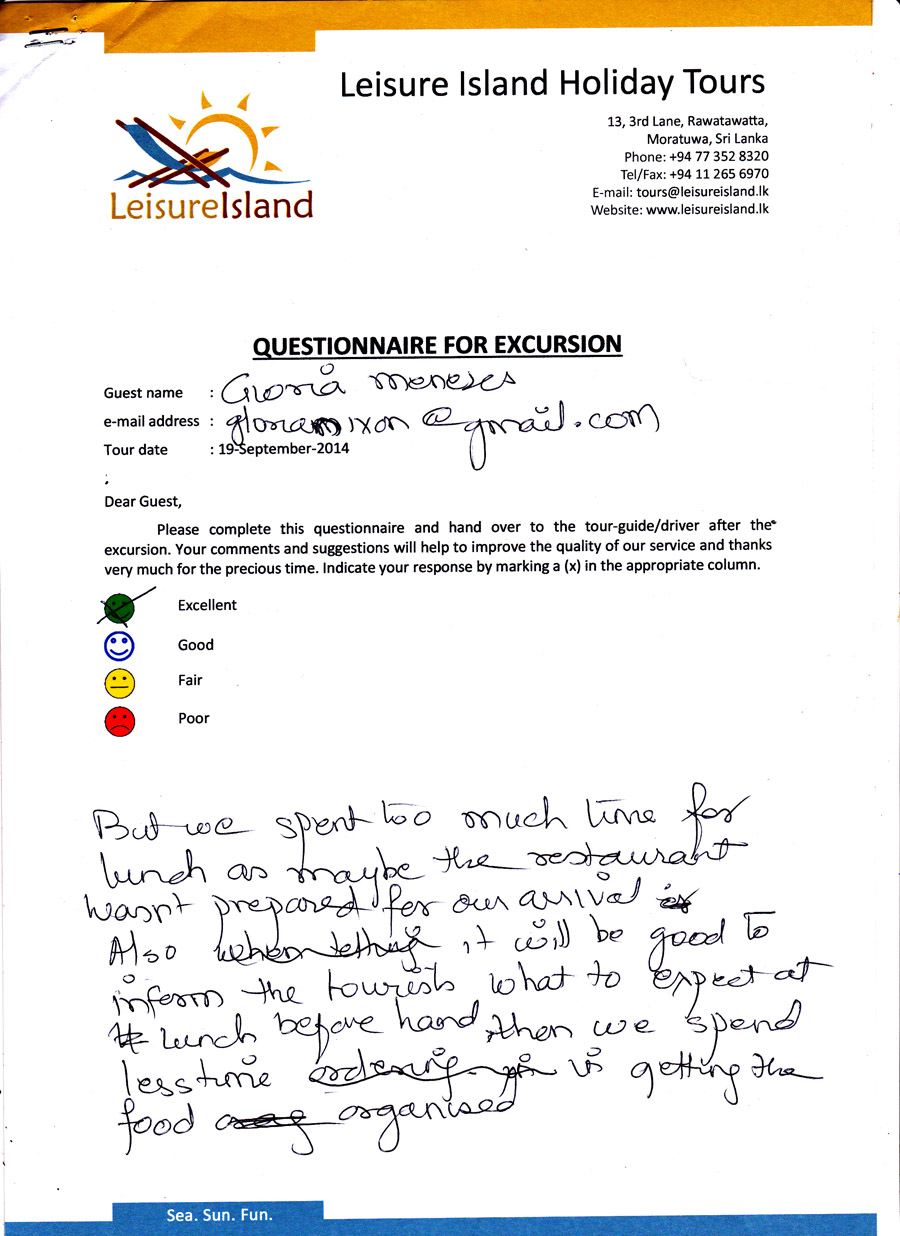 Leisure Island Holiday Tours
13, 3rd Lane, Rawatawatta,
Moratuwa, Sri Lanka
Phone: +94 77 352 8320
Tel/Fax: +94 11 265 6970
E-mail: tours@leisureisland.lk
Website: www.leisureisland.lk
LeisureIsland
QUESTIONNAIRE FOR EXCURSION
Guest name : Gloria Meneses
e-mail address : @gmail.com
Tour date : 19-September-2014
:
Dear Guest,
Please complete this questionnaire and hand over to the tour-guide/driver after the
excursion. Your comments and suggestions will help to improve the quality of our service and thanks
very much for the precious time. Indicate your response by marking a (x) in the appropriate column.
Excellent
Good
Fair
Poor
But we spent too much time for
lunch as maybe the restaurant
wasnt prepared for our arrival
Also it will be good to
inform the tourists what to expect at
lunch before hand, then we spend
less time in getting the
food organised
Sea. Sun. Fun.